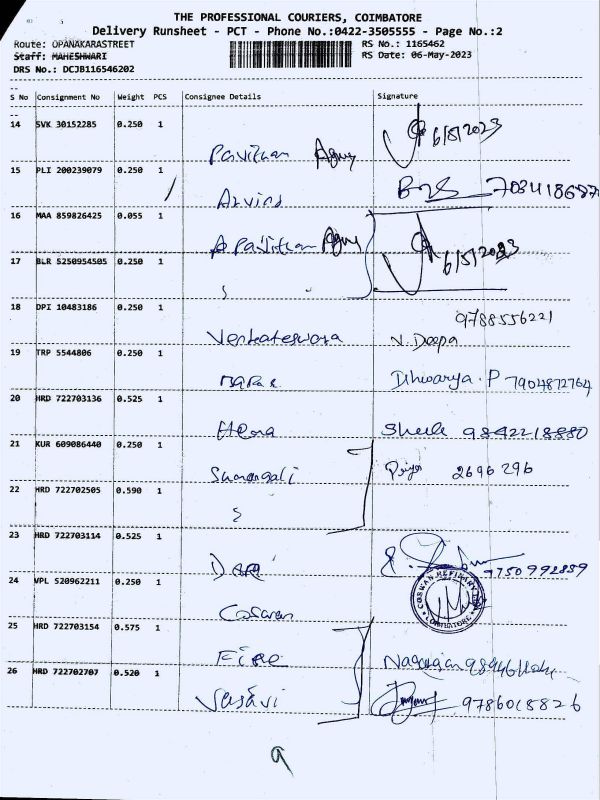 THE PROFESSIONAL COURIERS, COIMBATORE
Delivery Runsheet - PCT - Phone No.:0422-3505555 - Page No.:2
Route: OPANAKARASTREET RS No.: 1165462
Staff: MAHESHWARI RS Date: 06-May-2023
DRS No.: DCJB116546202
S No Consignment No Weight PCS Consignee Details Signature
14 SVK 30152285 0.250 1
6/5/2023
15 PLI 200239079 0.250 1
Arvind
16 MAA 859826425 0.055 1
6/5/2023
17 BLR 5250954505 0.250 1
18 DPI 10483186 0.250 1
9788556221
Venkateswara N. Deepa
19 TRP 5544806 0.250 1
P 7904872764
20 HRD 722703136 0.525 1
Hema 9842218880
21 KUR 609086440 0.250 1
Priya 2696296
22 HRD 722702505 0.590 1
23 HRD 722703114 0.525 1
9750992859
24 VPL 520962211 0.250 1
COSWAN REFINERY
COIMBATORE
25 HRD 722703154 0.575 1
Nagarajan
26 HRD 722702707 0.520 1
Vasavi 9786018826